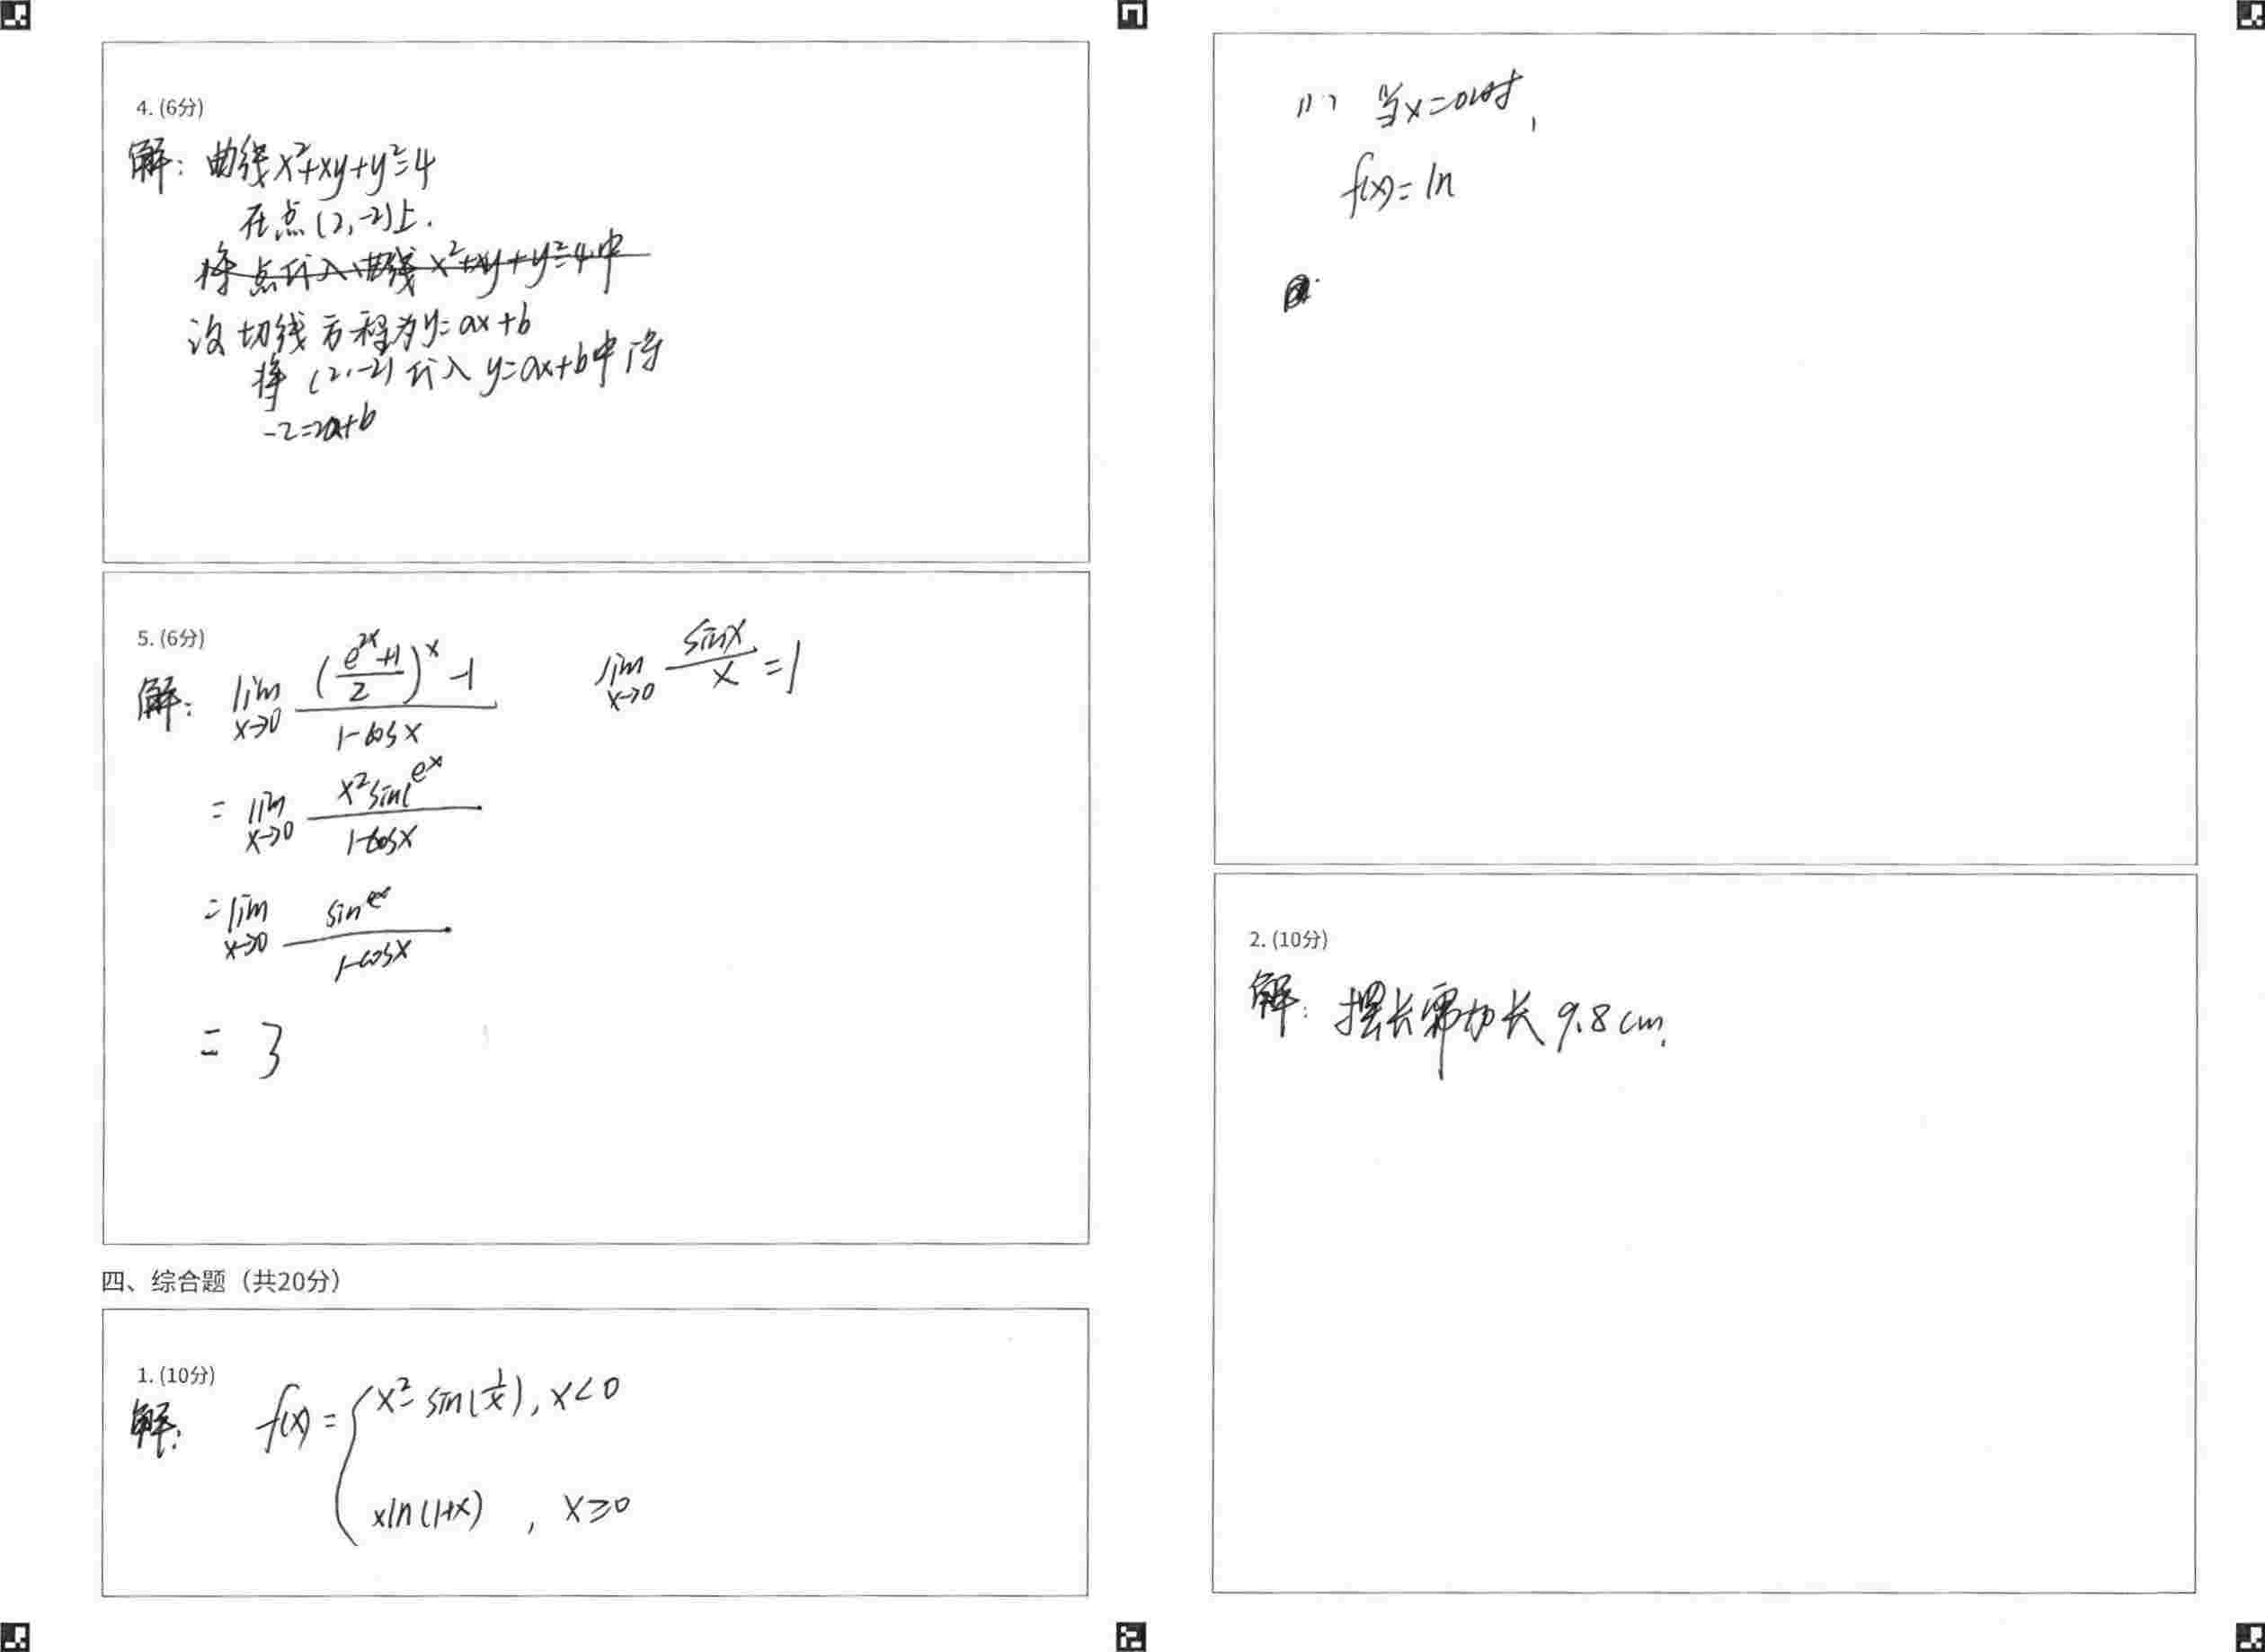 4. (6分)
解: 曲线x²+xy+y²=4
在点(2,-2)上.
将点代入曲线x²+xy+y²=4中
设切线方程为y=ax+b
将(2,-2)代入y=ax+b中得
-2=2a+b
5. (6分)
解: lim x→0 ((e^2x+1)/2)^x -1 / 1-cosx
lim x→0 sinx/x =1
= lim x→0 x²sin(e^x / 1-cosx
= lim x→0 / 1-cosx
= 3
四、综合题（共20分）
1. (10分)
解: f(x)= { x² sin(1/x), x<0
xln(1+x) , x≥0
(1) 当x=0时,
f(x)= ln
2. (10分)
解: 摆长需加长 9.8cm.